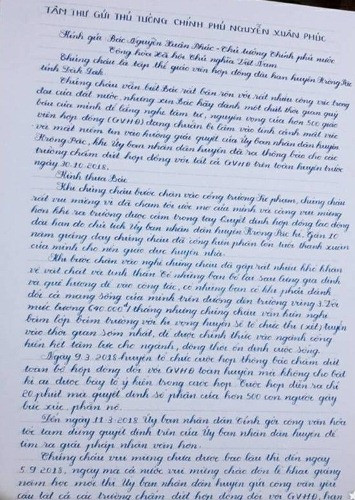 TÂM THƯ GỬI THỦ TƯỚNG CHÍNH PHỦ NGUYỄN XUÂN PHÚC
Kính gửi Bác Nguyễn Xuân Phúc - Thủ tướng Chính phủ nước
Cộng hòa Xã hội Chủ nghĩa Việt Nam
Chúng cháu là tập thể giáo viên hợp đồng dài hạn huyện Krông Pắc
tỉnh Đắk Lắk.
Chúng cháu vẫn biết Bác rất bận rộn với rất nhiều công việc trọng
đại của đất nước, nhưng xin Bác hãy dành một chút thời gian quý
báu của mình để lắng nghe tâm tư, nguyện vọng của hơn 500 giáo
viên hợp đồng (GVHĐ) đang chuẩn bị lâm vào tình cảnh mất việc
và mất niềm tin vào hướng giải quyết của Ủy ban nhân dân huyện
Krông Pắc, khi Ủy ban nhân dân huyện đã ra thông báo cho các
trường chấm dứt hợp đồng với tất cả GVHĐ trên toàn huyện trước
ngày 30.10.2018.
Kính thưa Bác
Khi chúng cháu bước chân vào cổng trường Sư phạm, chúng cháu
rất vui mừng vì đã chạm tới ước mơ của mình và càng vui mừng
hơn khi ra trường được cầm trong tay Quyết định hợp đồng lao động
dài hạn do chủ tịch Ủy ban nhân dân huyện Krông Pắc kí. Gần 10
năm quãng dạy chúng cháu đã cống hiến phần lớn tuổi thanh xuân
của mình cho nền giáo dục huyện nhà.
Khi bước chân vào nghề chúng cháu đã gặp rất nhiều khó khăn
về vật chất và tinh thần. Có những bạn bỏ lại sau lưng gia đình
và quê hương để vào công tác, có những bạn có khi phải đánh
đổi cả mạng sống của mình trên đường đến trường vùng 3. Với
mức lương 690.000đ/tháng nhưng chúng cháu vẫn kiên nghị
bám lớp bám trường với hi vọng huyện sẽ tổ chức thi (xét) tuyển
vào thời gian sớm nhất, để được chính thức vào ngành cống
hiến hết tâm lực cho ngành, đồng thời ổn định cuộc sống.
Ngày 9.3.2018 huyện tổ chức cuộc họp thông báo chấm dứt
toàn bộ hợp đồng đối với GVHĐ toàn huyện mà không cho bất
kì ai được bày tỏ ý kiến trong cuộc họp. Cuộc họp diễn ra chỉ
20 phút mà quyết định số phận của hơn 500 con người gây
bức xúc, phẫn nộ.
Đến ngày 11.3.2018 Ủy ban nhân dân tỉnh gửi công văn hỏa
tốc tạm dừng quyết định trên của Ủy ban nhân dân huyện để
tìm ra giải pháp nhân văn hơn.
Chúng cháu vui mừng chưa được bao lâu thì đến ngày
5.9.2018, ngày mà cả nước vui mừng chào đón lễ khai giảng
năm học mới thì Ủy ban nhân dân huyện gửi công văn yêu
cầu tất cả các trường chấm dứt hợp đồng đối với GVHĐ